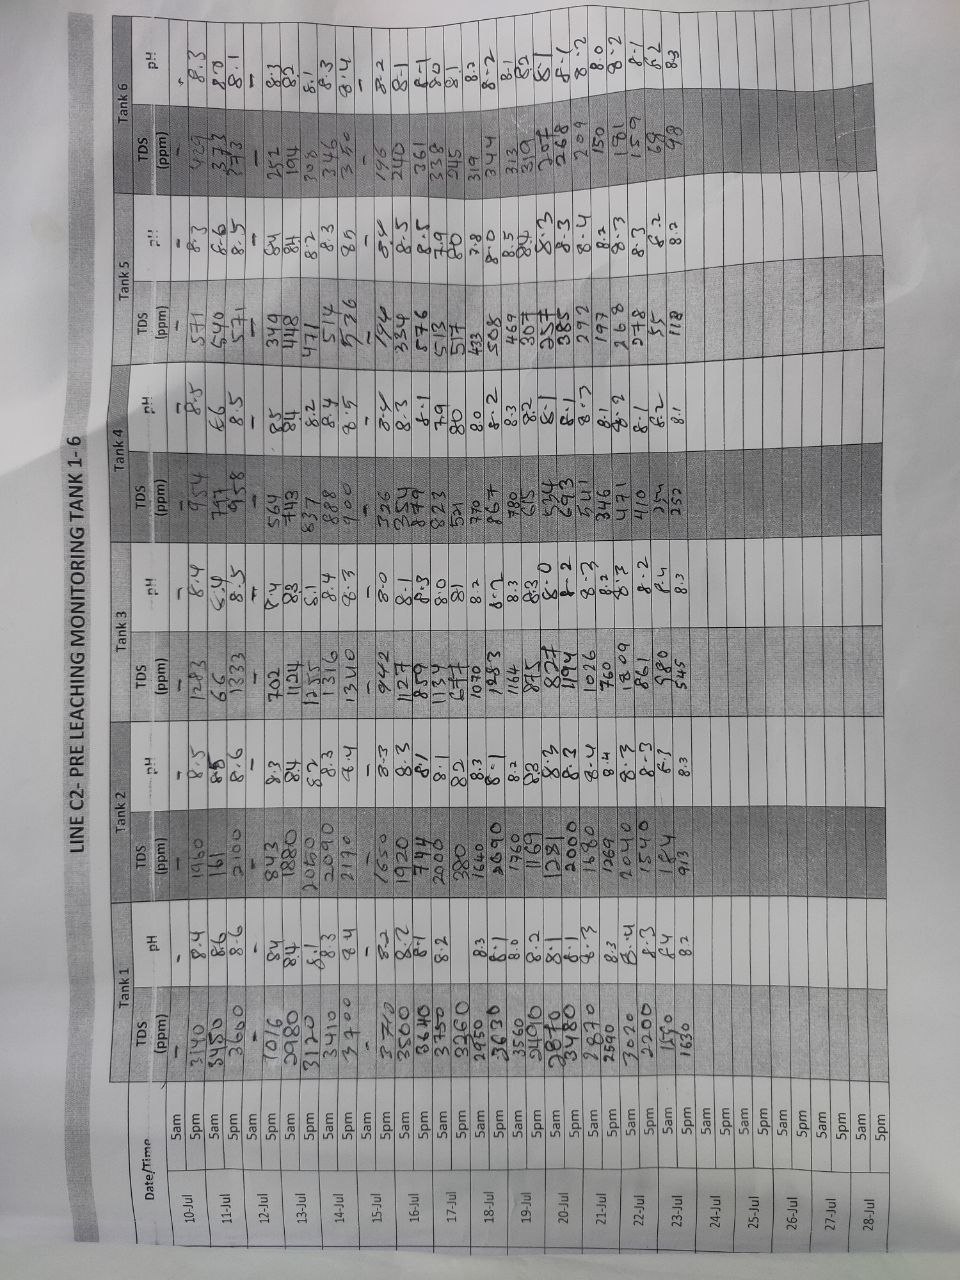 LINE C2- PRE LEACHING MONITORING TANK 1- 6
Date/Time Tank 1 Tank 2 Tank 3 Tank 4 Tank 5 Tank 6
TDS (ppm) pH TDS (ppm) pH TDS (ppm) pH TDS (ppm) pH TDS (ppm) pH TDS (ppm) pH
10-Jul 5am - - - - - - - - - - -
5pm 3140 8.4 1960 8.5 1283 8.4 954 8.5 571 8.3 8.3
11-Jul 5am 3450 8.6 161 8.6 66 8.4 797 8.6 540 8.6 373 8.0
5pm 3600 8.6 2100 8.6 1333 8.5 958 8.5 571 8.5 373 8.1
12-Jul 5am - - - - - - - - - - - -
5pm 1016 84 843 8.3 702 8.4 564 85 349 84 252 8.3
13-Jul 5am 2980 8.4 1880 8.4 1124 83 743 84 448 84 194 82
5pm 3120 8.1 2050 8.2 1255 8.1 837 8.2 471 8.2 308 8.1
14-Jul 5am 3410 8.3 2090 8.3 1316 8.4 888 8.4 514 8.3 346 8.3
5pm 3700 84 2170 8.4 1340 8.3 900 8.5 526 85 350 8.4
15-Jul 5am - - - - - - - - - - - -
5pm 3710 8.2 1650 8.3 942 8.0 326 8.4 194 8.4 196 8.2
16-Jul 5am 3500 8.2 1920 8.3 1127 8.1 354 8.3 334 8.5 240 8.1
5pm 3640 8.1 744 8.1 859 8.3 879 8.1 576 8.5 361 8.1
17-Jul 5am 3750 8.2 2000 8.1 1134 8.0 823 7.9 513 7.9 338 8.0
5pm 3260 380 82 677 81 521 80 517 80 245 8.1
18-Jul 5am 2950 8.3 1640 8.3 1070 8.2 770 8.0 433 7.8 319 8.2
5pm 3630 8.1 2090 8.1 1283 8.2 867 8.2 508 8.0 344 8.2
19-Jul 5am 3560 8.0 1760 8.2 1164 8.3 780 8.3 469 8.5 313 8.1
5pm 2490 8.2 1169 8.3 875 8.3 615 8.2 307 8.4 319 8.2
20-Jul 5am 2870 8.1 1281 8.3 827 8.0 534 8.1 257 8.3 207 8.1
5pm 3480 8.1 2000 8.3 1194 8.2 693 8.1 385 8.3 268 8.1
21-Jul 5am 2870 8.3 1680 8.4 1026 8.3 541 8.3 292 8.4 209 8.2
5pm 2590 8.3 1269 8.4 760 8.2 346 8.1 197 8.2 150 8.0
22-Jul 5am 3020 8.4 2040 8.3 1809 8.3 471 8.2 268 8.3 181 8.2
5pm 2200 8.3 1540 8.3 861 8.2 410 8.1 278 8.3 159 8.1
23-Jul 5am 1550 8.4 184 8.3 980 8.4 254 8.2 55 8.2 69 8.2
5pm 1630 8.2 913 8.3 545 8.3 252 8.1 118 8.2 98 8.3
24-Jul 5am
5pm
25-Jul 5am
5pm
26-Jul 5am
5pm
27-Jul 5am
5pm
28-Jul 5am
5pm